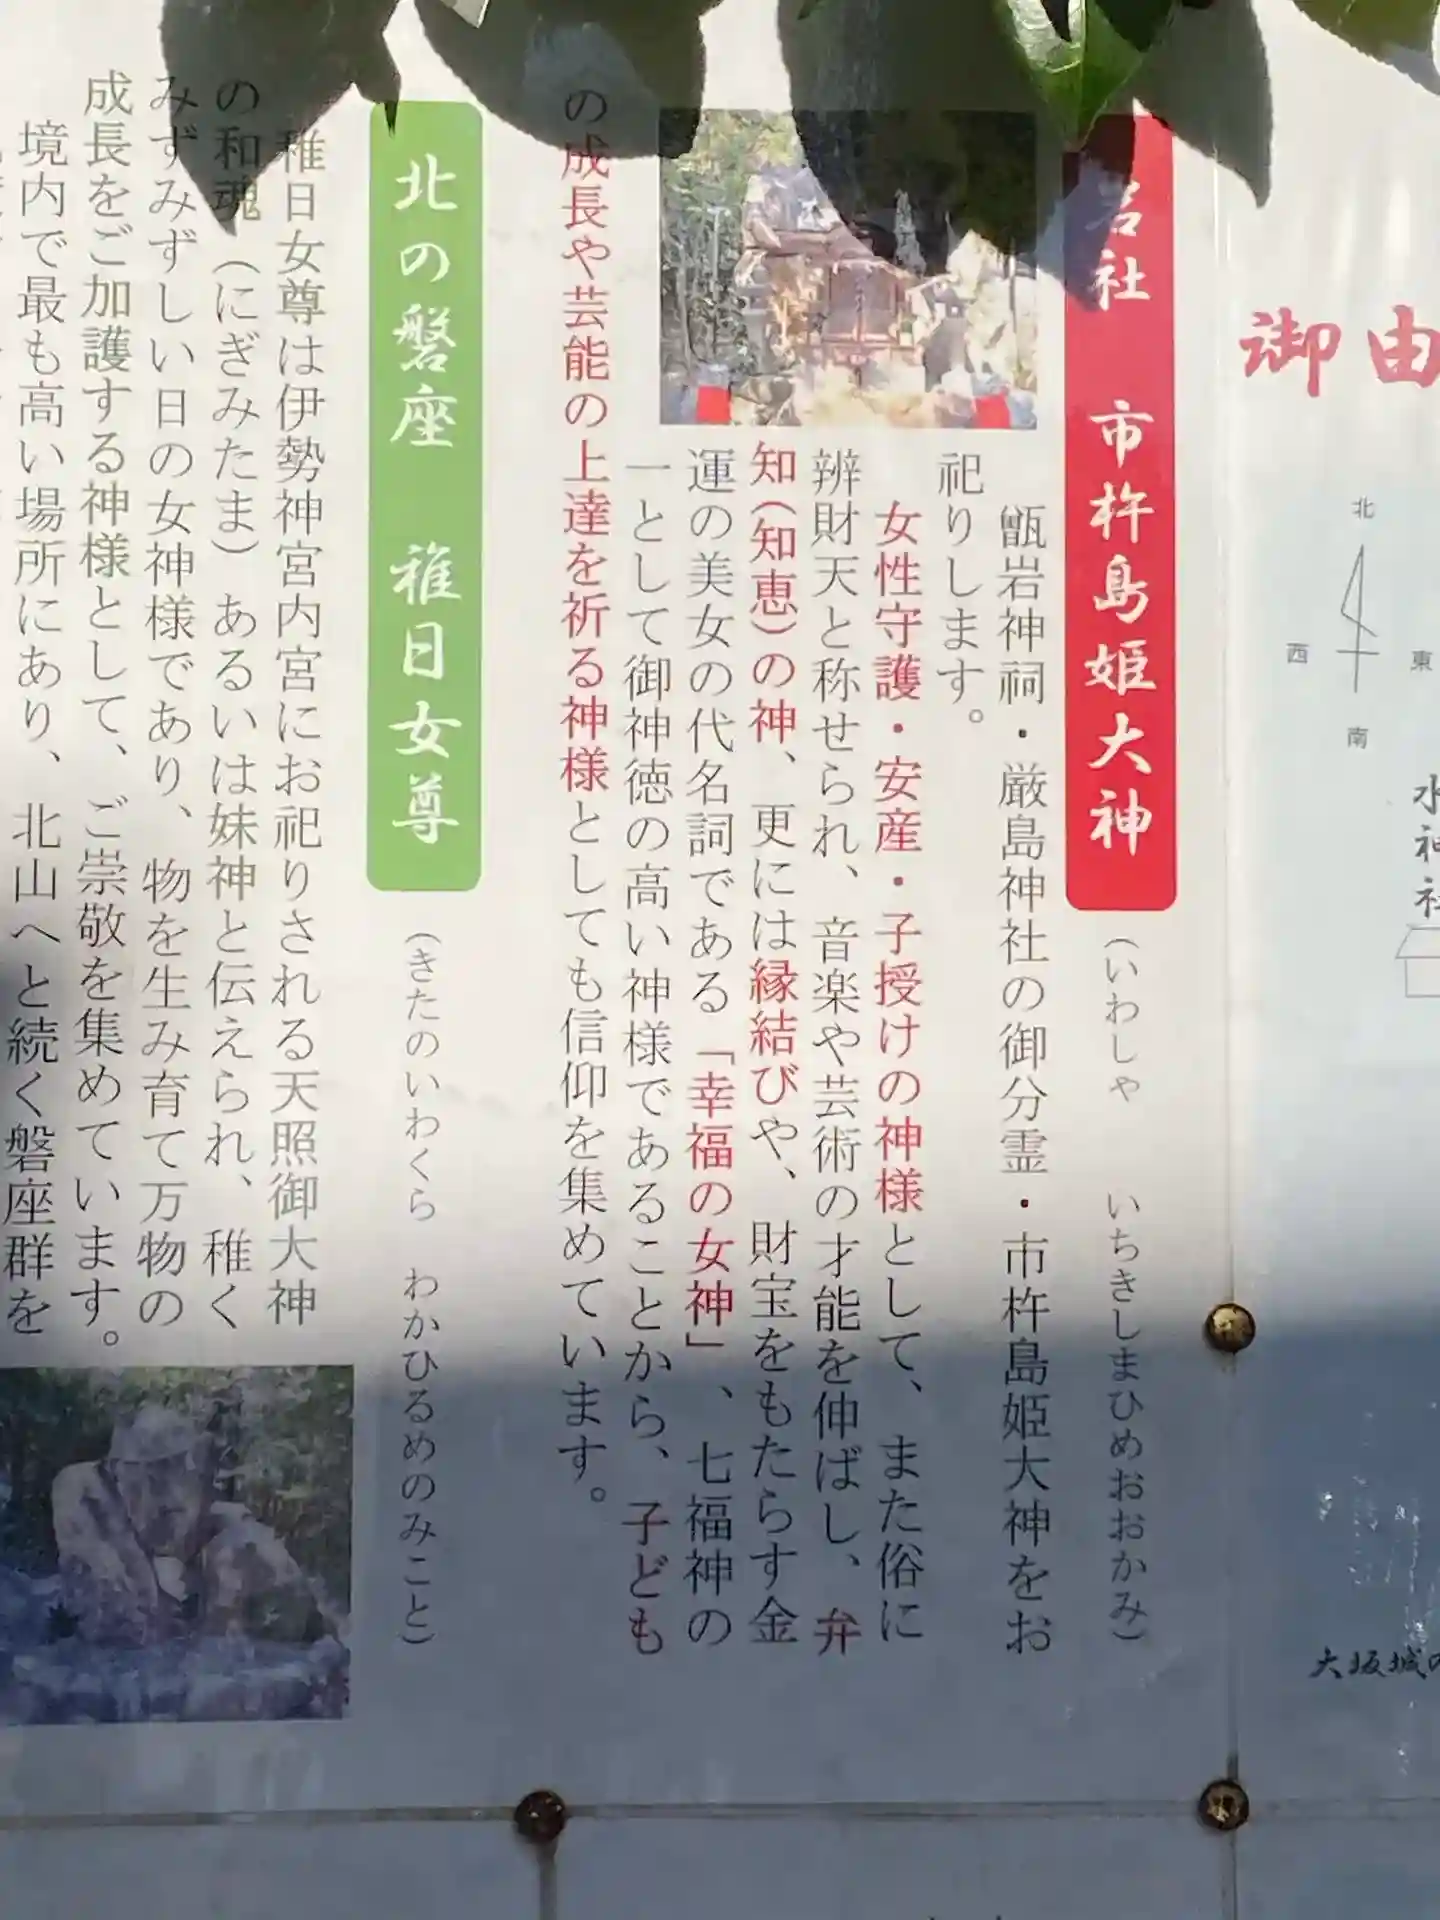 御由
北
西
東
南
水神社
大坂城の
岩社 市杵島姫大神
(いわしゃ いちきしまひめおおかみ)
甑岩神祠・厳島神社の御分霊・市杵島姫大神をお
祀りします。
女性守護・安産・子授けの神様として、また俗に
辨財天と称せられ、音楽や芸術の才能を伸ばし、弁
知(知恵)の神、更には縁結びや、財宝をもたらす金
運の美女の代名詞である「幸福の女神」、七福神の
一として御神徳の高い神様であることから、子ども
の成長や芸能の上達を祈る神様としても信仰を集めています。
北の磐座 稚日女尊
(きたのいわくら わかひるめのみこと)
稚日女尊は伊勢神宮内宮にお祀りされる天照御大神
の和魂(にぎみたま)あるいは妹神と伝えられ、稚く
みずみずしい日の女神様であり、物を生み育て万物の
成長をご加護する神様として、ご崇敬を集めています。
境内で最も高い場所にあり、北山へと続く磐座群を